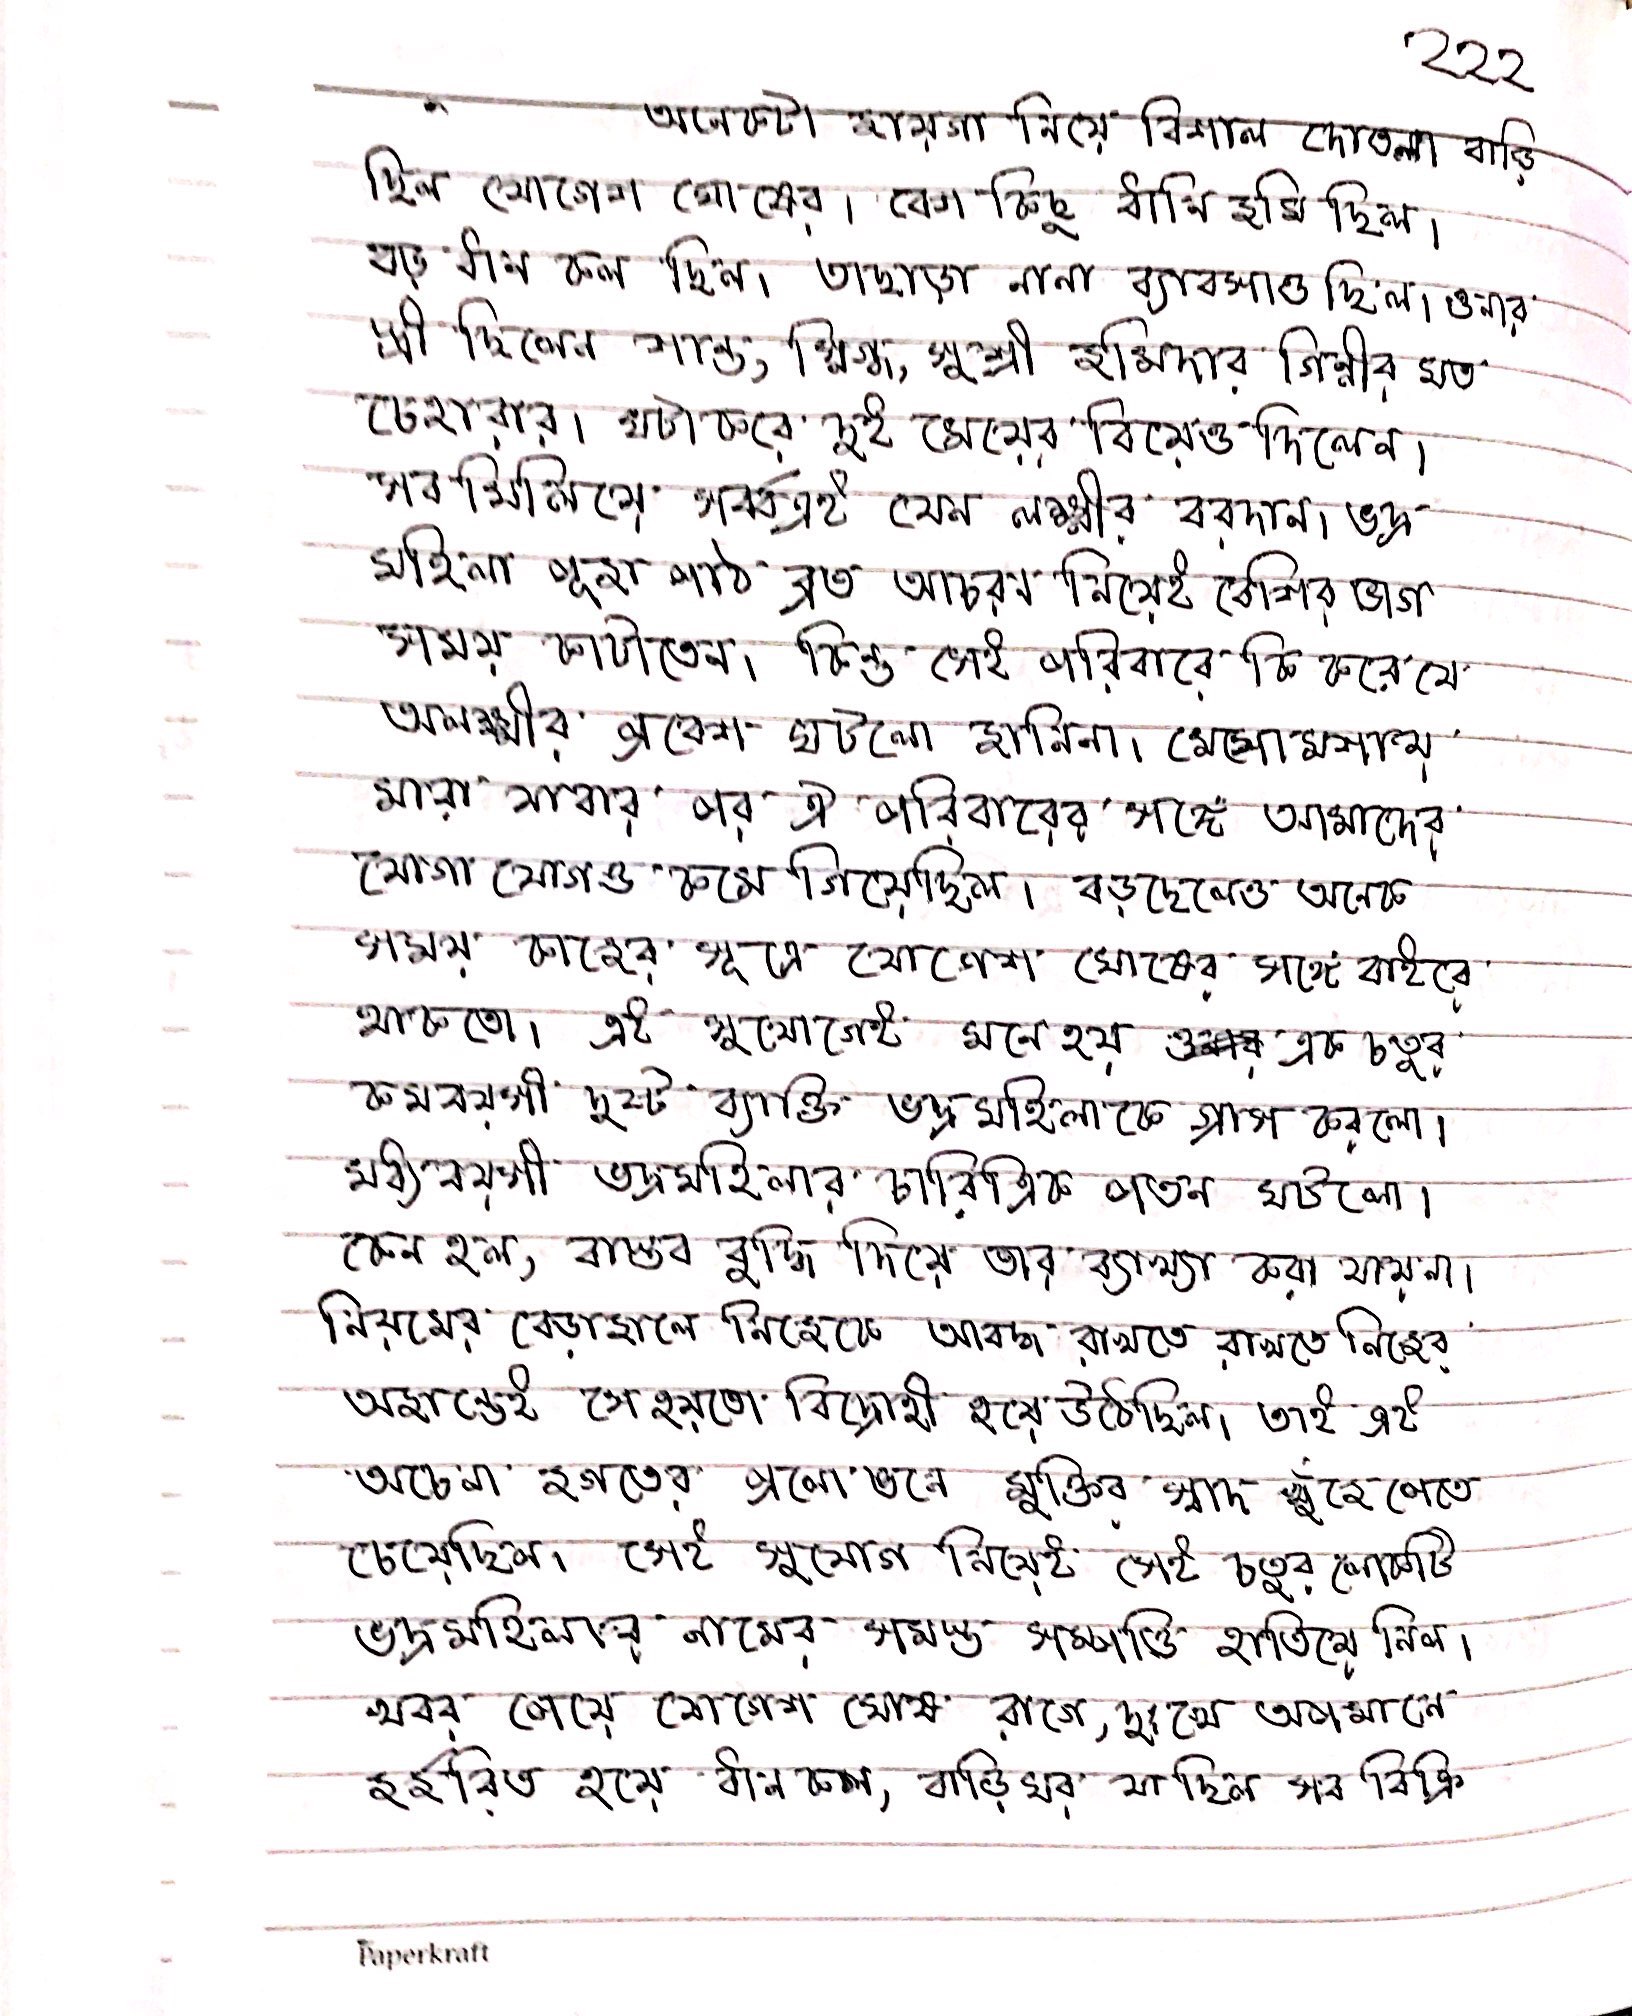 ২২২
অনেকটা জায়গা নিয়ে বিশাল দোতলা বাড়ি
ছিল যোগেশ ঘোষের। বেশ কিছু ধানি জমি ছিল।
বড় ধান কল ছিল। তাছাড়া নানা ব্যাবসাও ছিল। ওনার
স্ত্রী ছিলেন শান্ত, স্নিগ্ধ, সুশ্রী জমিদার গিন্নীর মত
চেহারার। ঘটা করে দুই মেয়ের বিয়েও দিলেন।
সব মিলিয়ে সর্বত্রই যেন লক্ষ্মীর বরদান। ভদ্র
মহিলা পূজা পাঠ ব্রত আচরণ নিয়েই বেশির ভাগ
সময় কাটাতেন। কিন্তু সেই পরিবারে কি করে যে
অলক্ষ্মীর প্রবেশ ঘটলো জানিনা। মেসোমশায়
মারা যাবার পর ঐ পরিবারের সঙ্গে আমাদের
যোগা যোগও কমে গিয়েছিল। বড়ছেলেও অনেক
সময় কাজের সূত্রে যোগেশ ঘোষের সঙ্গে বাইরে
থাকতো। এই সুযোগেই মনে হয় এক চতুর
কমবয়সী দুষ্ট ব্যাক্তি ভদ্রমহিলাকে গ্রাস করলো।
মধ্যবয়সী ভদ্রমহিলার চারিত্রিক পতন ঘটলো।
কেন হল, বাস্তব বুদ্ধি দিয়ে তার ব্যাখ্যা করা যায়না।
নিয়মের বেড়াজালে নিজেকে আবদ্ধ রাখতে রাখতে নিজের
অজান্তেই সে হয়তো বিদ্রোহী হয়ে উঠেছিল। তাই এই
অচেনা জগতের প্রলোভনে মুক্তির স্বাদ খুঁজে পেতে
চেয়েছিল। সেই সুযোগ নিয়েই সেই চতুর লোকটি
ভদ্রমহিলার নামের সমস্ত সম্পত্তি হাতিয়ে নিল।
খবর পেয়ে যোগেশ ঘোষ রাগে, দুঃখে অপমানে
জর্জরিত হয়ে ধানকল, বাড়িঘর যা ছিল সব বিক্রি
Paperkraft